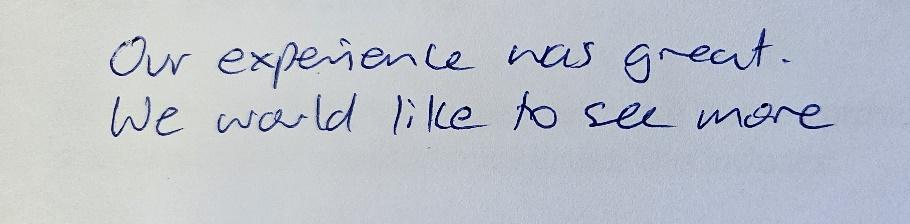 Our experience was great.
We would like to see more